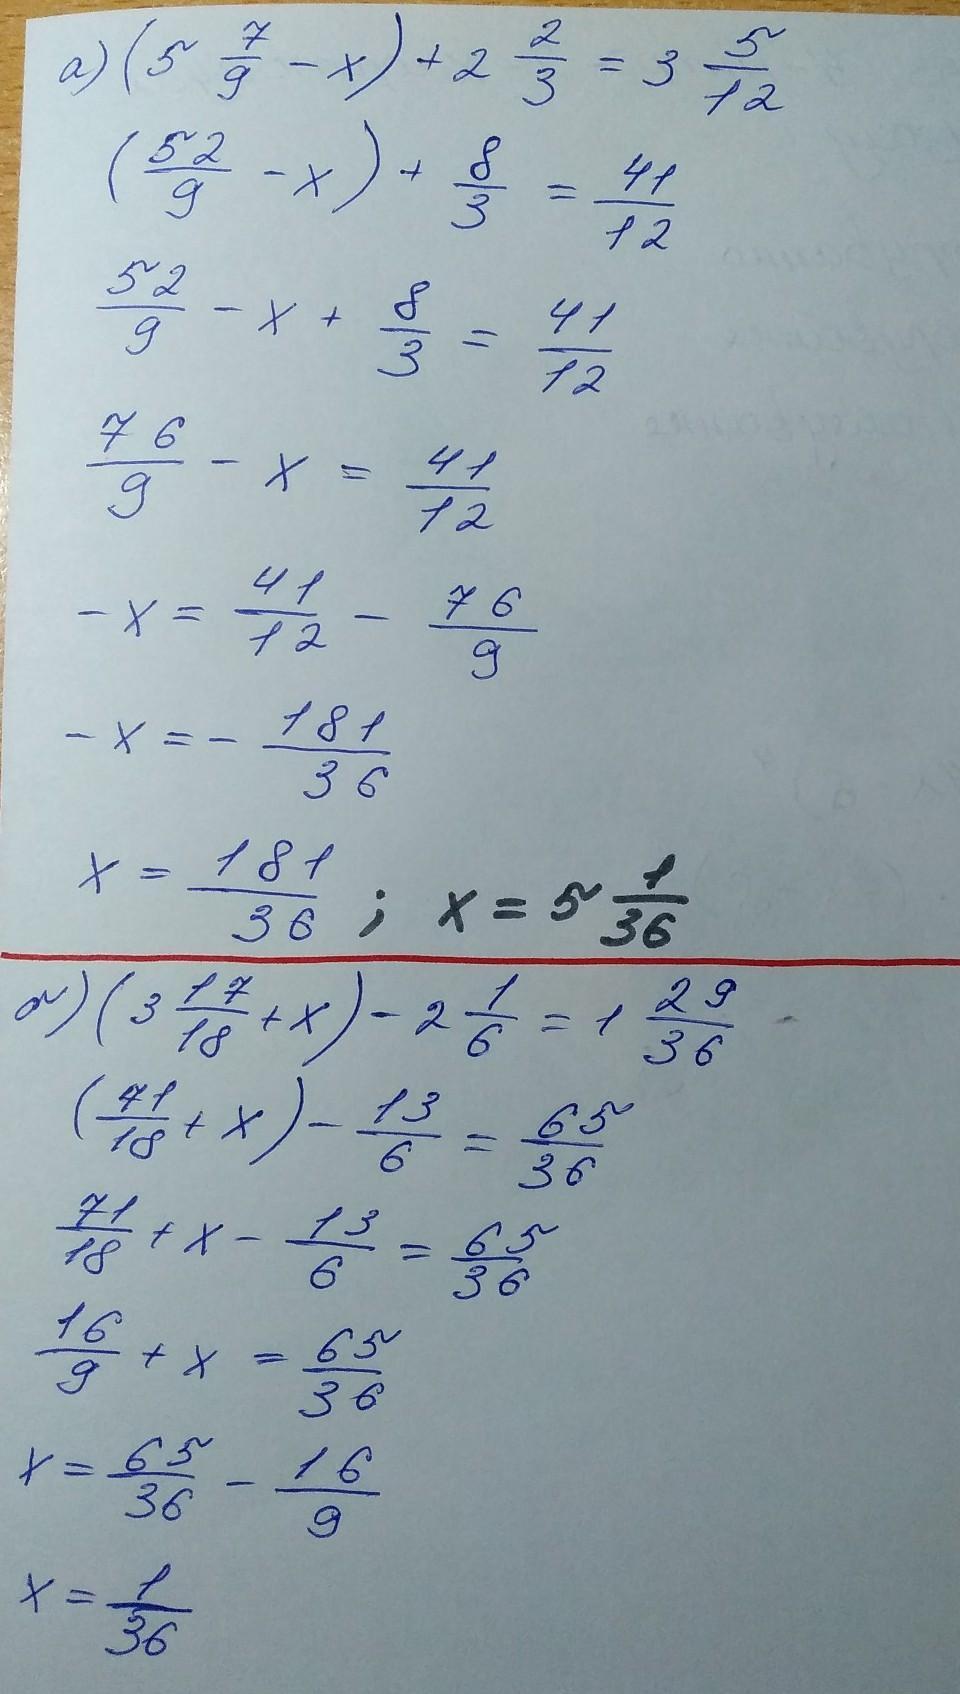 а) (5 7/9 - x) + 2 2/3 = 3 5/12
(52/9 - x) + 8/3 = 41/12
52/9 - x + 8/3 = 41/12
76/9 - x = 41/12
- x = 41/12 - 76/9
- x = - 181/36
x = 181/36 ; x = 5 1/36
б) (3 17/18 + x) - 2 1/6 = 1 29/36
(71/18 + x) - 13/6 = 65/36
71/18 + x - 13/6 = 65/36
16/9 + x = 65/36
x = 65/36 - 16/9
x = 1/36